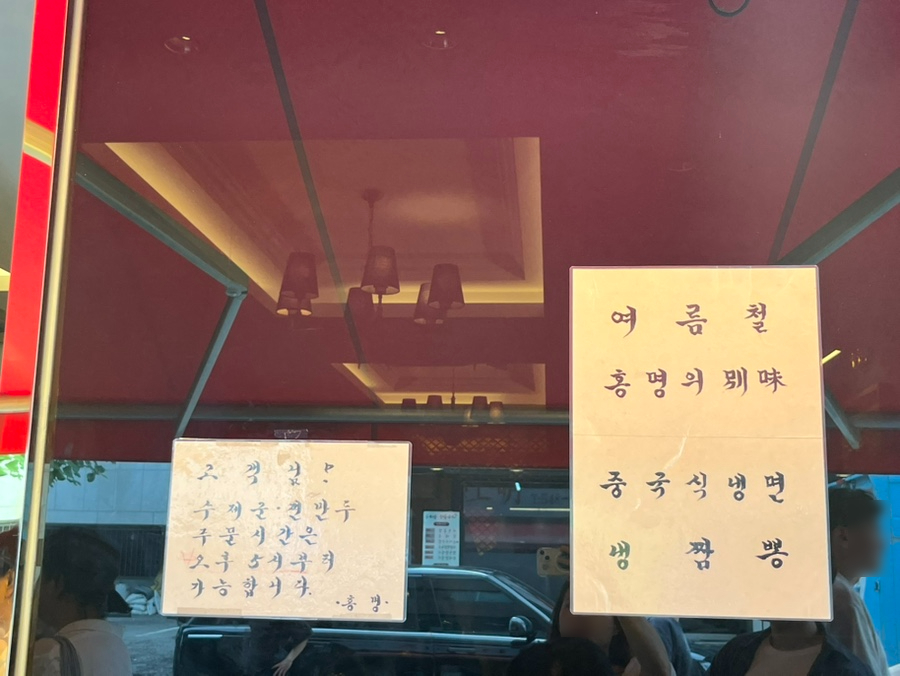 고객님!
수제군·찐만두
주문시간은
오후 5시부터
가능합니다.
·홍명·
여름철
홍명의 別味
중국식냉면
냉짬뽕